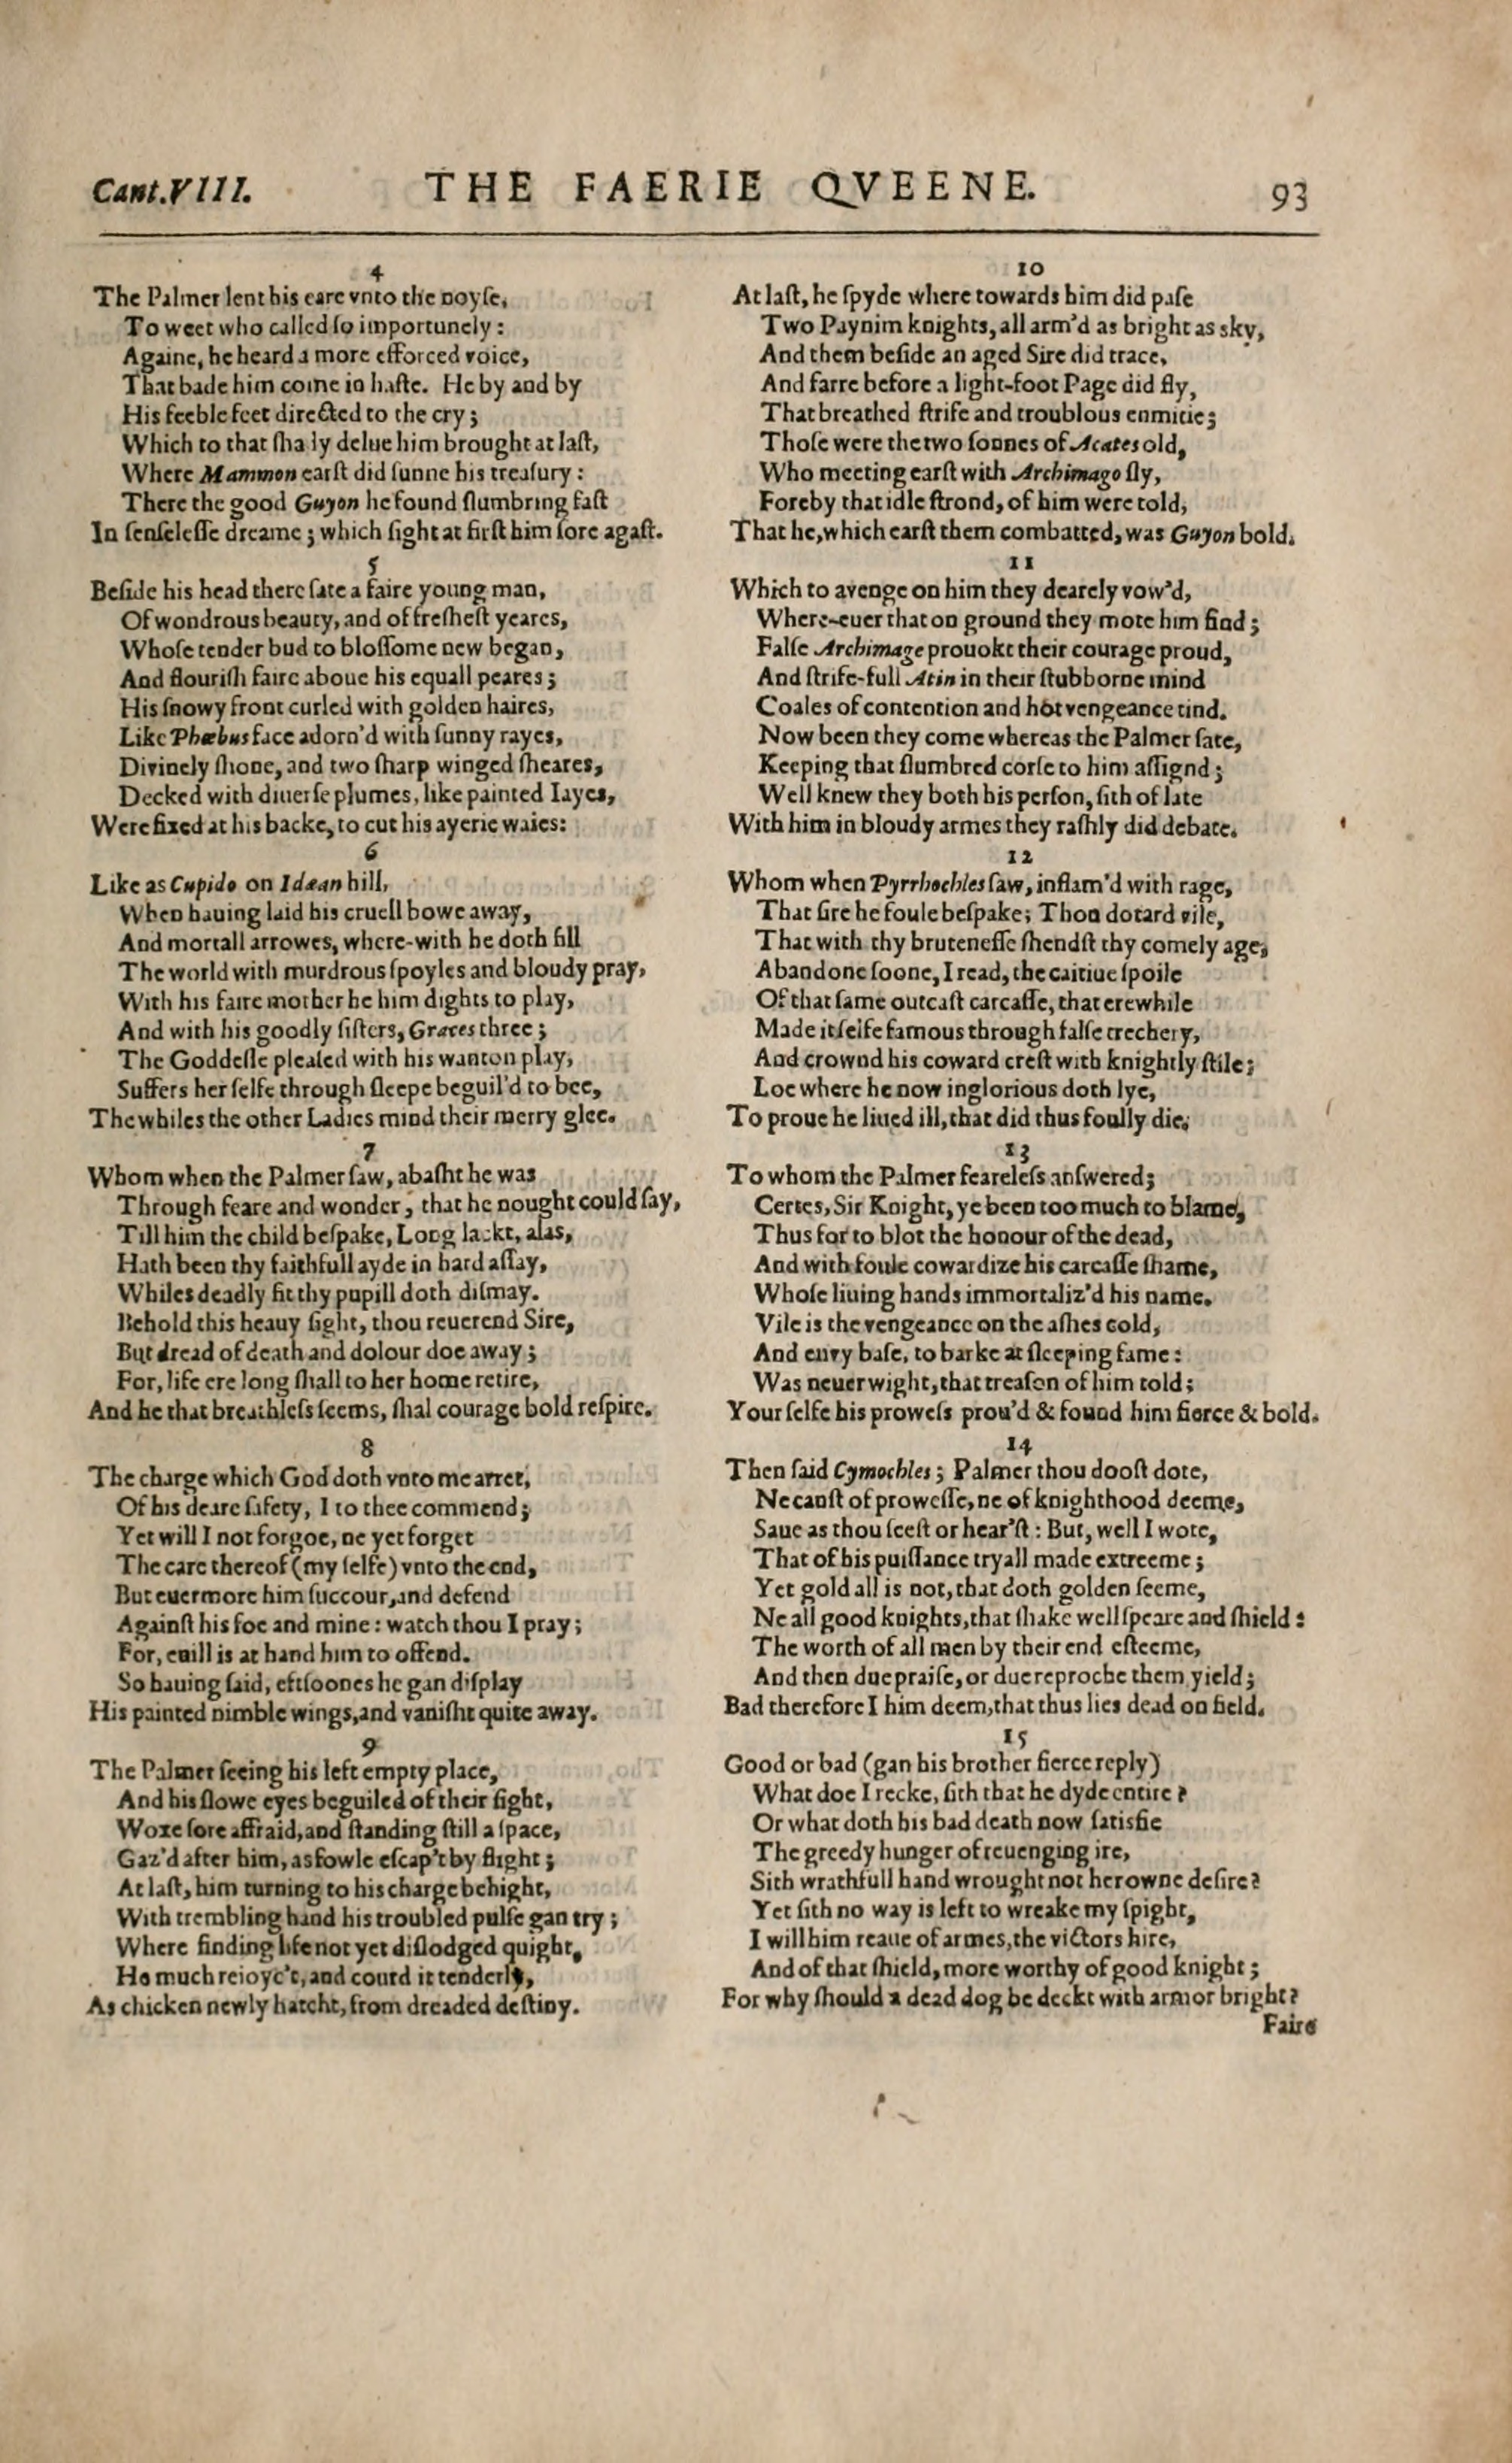 Cant.VIII. THE FAERIE QVEENE. 93
4
The Palmer lent his eare vnto the noyſe,
To weet who called ſo importunely:
Againe, he heard a more efforced voice,
That bade him come in haſte. He by and by
His feeble feet directed to the cry;
Which to that ſhady delue him brought at laſt,
Where Mammon earſt did ſunne his treaſury:
There the good Guyon he found ſlumbring faſt
In ſenſeleſſe dreame; which ſight at firſt him ſore agaſt.
5
Beſide his head there ſate a faire young man,
Of wondrous beauty, and of freſheſt yeares,
Whoſe tender bud to bloſſome new began,
And flouriſh faire aboue his equall peares;
His ſnowy front curled with golden haires,
Like Phœbus face adorn'd with ſunny rayes,
Diuinely ſhone, and two ſharp winged ſheares,
Decked with diuerſe plumes, like painted Iayes,
Were fixed at his backe, to cut his ayerie waies:
6
Like as Cupido on Idæan hill,
When hauing laid his cruell bowe away,
And mortall arrowes, where-with he doth fill
The world with murdrous ſpoyles and bloudy pray,
With his faire mother he him dights to play,
And with his goodly ſiſters, Graces three;
The Goddeſſe pleaſed with his wanton play,
Suffers her ſelfe through ſleepe beguil'd to bee,
The whiles the other Ladies mind their merry glee.
7
Whom when the Palmer ſaw, abaſht he was
Through feare and wonder, that he nought could ſay,
Till him the child beſpake, Long lackt, alas,
Hath been thy faithfull ayde in hard aſſay,
Whiles deadly fit thy pupill doth diſmay.
Behold this heauy ſight, thou reuerend Sire,
But dread of death and dolour doe away;
For, life ere long ſhall to her home retire,
And he that breathleſs ſeems, ſhal courage bold reſpire.
8
The charge which God doth vnto me arret,
Of his deare ſafety, I to thee commend;
Yet will I not forgoe, ne yet forget
The care thereof (my ſelfe) vnto the end,
But euermore him ſuccour, and defend
Againſt his foe and mine: watch thou I pray;
For, euill is at hand him to offend.
So hauing ſaid, eftſoones he gan diſplay
His painted nimble wings, and vaniſht quite away.
9
The Palmer ſeeing his left empty place,
And his ſlowe eyes beguiled of their ſight,
Woxe ſore affraid, and ſtanding ſtill a ſpace,
Gaz'd after him, as fowle eſcap't by flight;
At laſt, him turning to his charge behight,
With trembling hand his troubled pulſe gan try;
Where finding life not yet diſlodged quight,
He much reioyc't, and courd it tenderly,
As chicken newly hatcht, from dreaded deſtiny.
10
At laſt, he ſpyde where towards him did paſe
Two Paynim knights, all arm'd as bright as sky,
And them beſide an aged Sire did trace,
And farre before a light-foot Page did fly,
That breathed ſtrife and troublous enmitie;
Thoſe were the two ſonnes of Acates old,
Who meeting earſt with Archimago ſly,
Foreby that idle ſtrond, of him were told,
That he, which earſt them combatted, was Guyon bold.
11
Which to avenge on him they dearely vow'd,
Where-euer that on ground they mote him find;
Falſe Archimage prouokt their courage proud,
And ſtrife-full Atin in their ſtubborne mind
Coales of contention and hot vengeance tind.
Now been they come whereas the Palmer ſate,
Keeping that ſlumbred corſe to him aſſignd;
Well knew they both his perſon, ſith of late
With him in bloudy armes they raſhly did debate.
12
Whom when Pyrrhochles ſaw, inflam'd with rage,
That ſire he foule beſpake; Thou dotard vile,
That with thy bruteneſſe ſhendſt thy comely age,
Abandone ſoone, I read, the caitiue ſpoile
Of that ſame outcaſt carcaſſe, that erewhile
Made it ſelfe famous through falſe trechery,
And crownd his coward creſt with knightly ſtile;
Loe where he now inglorious doth lye,
To proue he liued ill, that did thus foully die.
13
To whom the Palmer feareleſs anſwered;
Certes, Sir Knight, ye been too much to blame,
Thus for to blot the honour of the dead,
And with foule cowardize his carcaſſe ſhame,
Whoſe liuing hands immortaliz'd his name.
Vile is the vengeance on the aſhes cold,
And enuy baſe, to barke at ſleeping fame:
Was neuer wight, that treaſon of him told;
Your ſelfe his proweſs prou'd & found him fierce & bold.
14
Then ſaid Cymochles; Palmer thou dooſt dote,
Ne canſt of proweſſe, ne of knighthood deeme,
Saue as thou ſeeſt or hear'ſt: But, well I wote,
That of his puiſſance tryall made extreeme;
Yet gold all is not, that doth golden ſeeme,
Ne all good knights, that ſhake well ſpeare and ſhield:
The worth of all men by their end eſteeme,
And then due praiſe, or due reproche them yield;
Bad therefore I him deem, that thus lies dead on field.
15
Good or bad (gan his brother fierce reply)
What doe I recke, ſith that he dyde entire?
Or what doth his bad death now ſatisfie
The greedy hunger of reuenging ire,
Sith wrathfull hand wrought not her owne deſire?
Yet ſith no way is left to wreake my ſpight,
I will him reaue of armes, the victors hire,
And of that ſhield, more worthy of good knight;
For why ſhould a dead dog be deckt with armor bright?
Faire